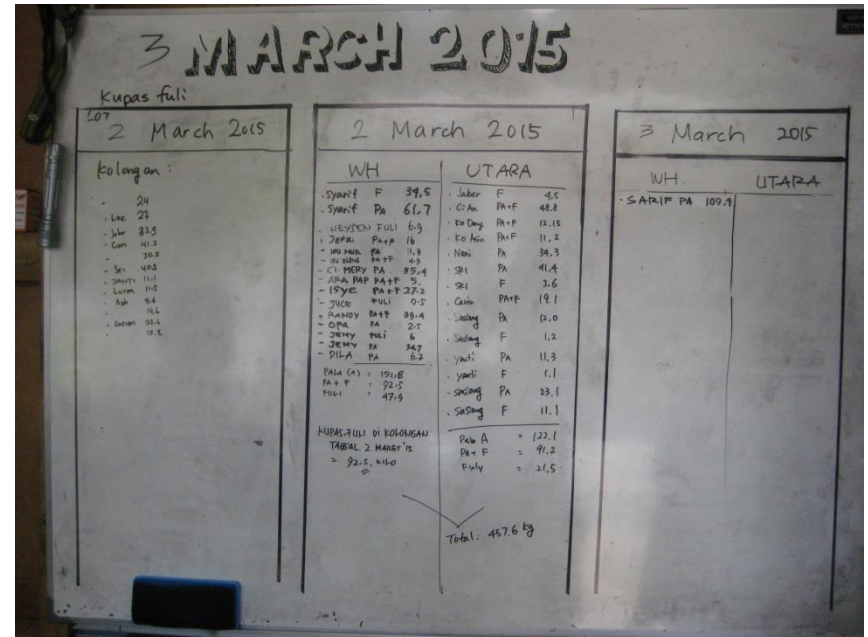 3 MARCH 2015
Kupas fuli
2 March 2015
Kolongan :
- 24
- Line 27
- 32.9
- 41.3
30.5
- Sri 40.5
- SANTI 11.1
- 11.5
- 9.6
2 March 2015
WH
- Syarif F 34,5
- Syarif PA 61.7
- HEYSEN FULI 6.9
- JEFRI PA+F 16
- IBU NUR PA 11,3
- PA+F 4.9
- CI-MERY PA 35,4
- ARA PAP PA+F 5.
- ISYE PA+F 27.2
- JUCE FULI 0.5
- RANDY PA+F 39.4
- OPA PA 2.5
- JEMY FULI 6
- JEMY PA 34.7
- DILA PA 6.2
PALA (A) = 151,8
PA + F = 92.5
FULI = 47.9
KUPAS FULI DI KOLONGAN
TANGGAL 2 MARET '15
= 92.5 KILO
UTARA
- Jaber F 4.5
- Ci An PA+F 48.8
- Ko Dany PA+F 12.15
- Ko Asin PA+F 11,2
- Nani PA 34,3
- SRI PA 41.4
- SRI F 3.6
- PA+F 19.1
- Sasiang PA 12.0
- Sasiang F 1,2
- yanti PA 11.3
- yanti F 1.1
- sasiang PA 23.1
- sasiang F 11.1
Pala A = 122.1
PA + F = 91.2
Fuly = 21,5
Total. 457.6 kg
3 March 2015
WH. UTARA
- SARIF PA 109.4